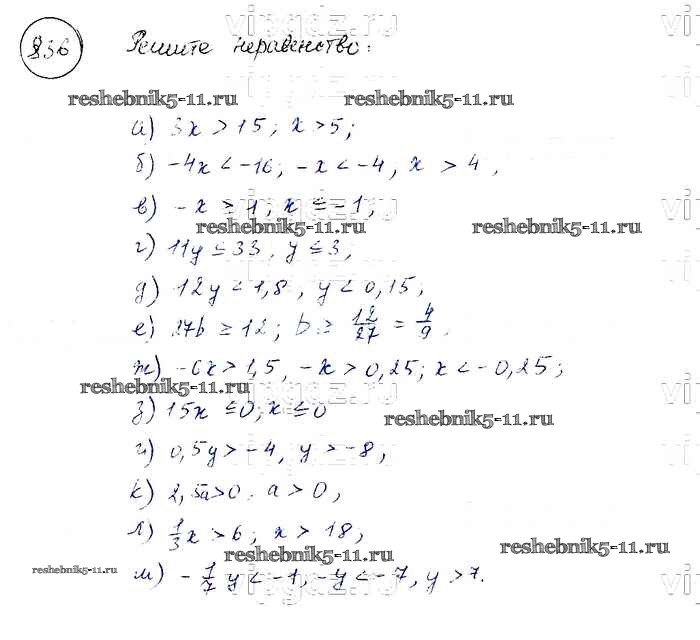 836 Решите неравенство:
reshebnik5-11.ru reshebnik5-11.ru
а) 3x > 15; x > 5;
б) -4x < -16; -x < -4, x > 4,
в) -x ≥ 1, x ≤ -1,
reshebnik5-11.ru reshebnik5-11.ru
г) 11y ≤ 33, y ≤ 3;
д) 12y < 1,8, y < 0,15,
е) 27b ≥ 12; b ≥ 12/27 = 4/9.
ж) -6x > 1,5, -x > 0,25; x < -0,25;
reshebnik5-11.ru
з) 15x ≤ 0, x ≤ 0
reshebnik5-11.ru
и) 0,5y > -4, y > -8,
к) 2,5a > 0. a > 0,
л) 1/3 x > 6; x > 18,
reshebnik5-11.ru reshebnik5-11.ru
reshebnik5-11.ru
м) - 1/7 y < -1, -y < -7, y > 7.
vipgdz.ru